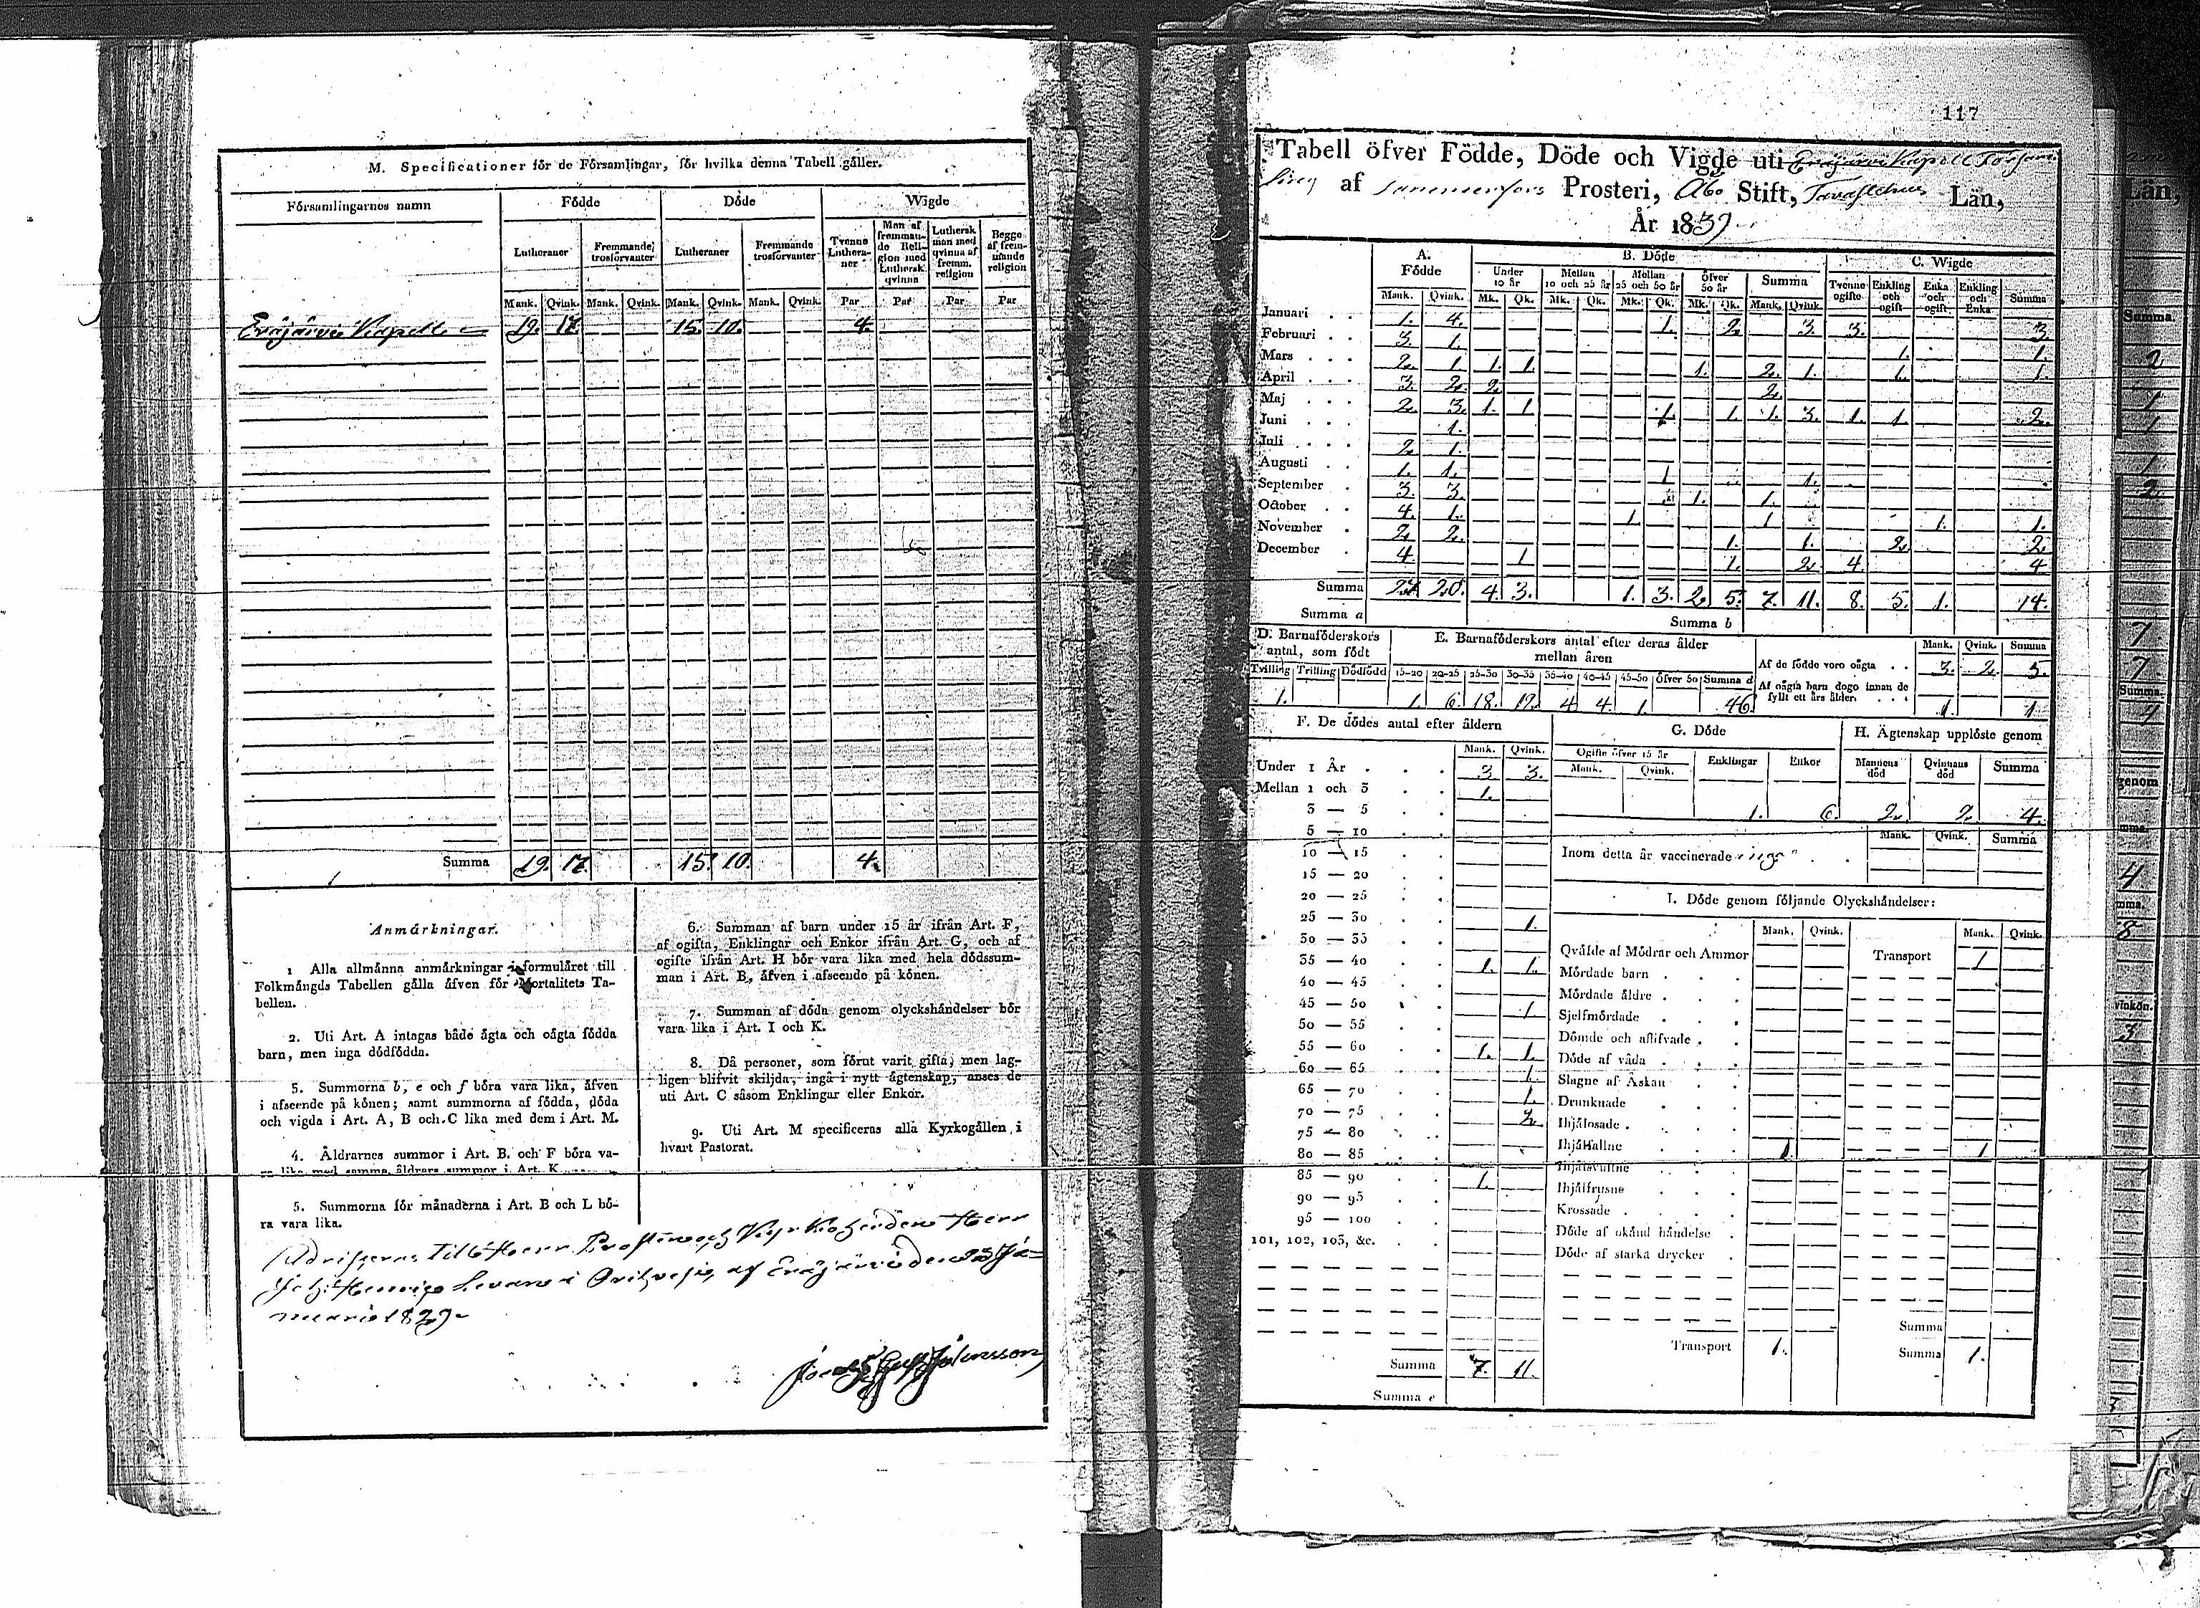 M. Specificationer för de Församlingar, för hvilka denna Tabell gäller.
Församlingarnes namn
Födde
Döde
Wigde
Lutheraner
Fremmande trosförvanter
Lutheraner
Fremmande trosförvanter
Tvenne Lutheraner
Man af fremmande Religion med Luthersk qvinna
Luthersk man med qvinna af fremm. religion
Begge af fremmande religion
Mank. Qvink. Mank. Qvink. Mank. Qvink. Mank. Qvink. Par Par Par Par
Eräjärvi Kapell 19. 17. 15. 10. 4.
Summa 19. 17. 15. 10. 4.
Anmärkningar.
1 Alla allmänna anmärkningar i formuläret till
Folkmängds Tabellen gälla äfven för Mortalitets Ta-
bellen.
2. Uti Art. A intagas både ägta och oägta födda
barn, men inga dödfödda.
3. Summorna b, e och f böra vara lika, äfven
i afseende på könen; samt summorna af födda, döda
och vigda i Art. A, B och C lika med dem i Art. M.
4. Åldrarnes summor i Art. B. och F böra va-
ra lika med samma åldrars summor i Art. K
5. Summorna för månaderna i Art. B och L bö-
ra vara lika.
6. Summan af barn under 15 år ifrån Art. F,
af ogifta, Enklingar och Enkor ifrån Art. G, och af
ogifte ifrån Art. H bör vara lika med hela dödssum-
man i Art. B, äfven i afseende på könen.
7. Summan af döda genom olyckshändelser bör
vara lika i Art. I och K.
8. Då personer, som förut varit gifta, men lag-
ligen blifvit skiljda, ingå i nytt ägtenskap, anses de
uti Art. C såsom Enklingar eller Enkor.
9. Uti Art. M specificeras alla Kyrkogällen i
hvart Pastorat.
Herr
i af Eräjärvi den 25 Ja-
nuarii 1829
117
Tabell öfver Födde, Döde och Vigde uti Eräjärvi Kapell Försam
ling af Tammerfors Prosteri, Åbo Stift, Tavastehus Län,
År 1839.
A. Födde
B. Döde
C. Wigde
Under 10 år
Mellan 10 och 25 år
Mellan 25 och 50 år
Öfver 50 år
Summa
Tvenne ogifte
Enkling och ogift
Enka och ogift
Enkling och Enka
Summa
Mank. Qvink. Mk. Qk. Mk. Qk. Mk. Qk. Mk. Qk. Mank. Qvink.
Januari 1. 4. 1. 2. 3. 3. 3.
Februari 3. 1. 1. 1.
Mars 2. 1. 1. 1. 1. 2. 1. 1. 1.
April 3. 2. 2. 2.
Maj 2. 3. 1. 1 1. 1 1. 3. 1. 1. 2.
Juni 1.
Juli 2. 1.
Augusti 1. 1. 1 1.
September 3. 3. 1. 1.
October 4. 1. 1 1 1. 1.
November 2. 2. 1. 1. 2. 2.
December 4. 1 1. 2. 4. 4
Summa 27 20. 4. 3. 1. 3. 2. 5. 7. 11. 8. 5. 1. 14.
Summa a
Summa b
D. Barnaföderskors antal, som födt
E. Barnaföderskors antal efter deras ålder mellan åren
Mank. Qvink. Summa
Af de födde voro oägta 3. 2. 5.
Af oägta barn dogo innan de fyllt ett års ålder 1. 1
Tvilling Trilling Dödfödd 15-20 20-25 25-30 30-35 35-40 40-45 45-50 Öfver 50 Summa d
1. 1. 6. 18. 12. 4 4. 1. 46.
F. De dödes antal efter åldern
Mank. Qvink.
Under 1 År 3 3.
Mellan 1 och 3 1.
3 — 5
5 — 10
10 — 15
15 — 20
20 — 25
25 — 30 1.
30 — 35
35 — 40 1. 1.
40 — 45
45 — 50 1
50 — 55
55 — 60 1. 1.
60 — 65 1.
65 — 70 1.
70 — 75 2.
75 — 80
80 — 85
85 — 90 1.
90 — 95
95 — 100
101, 102, 103, &c.
Summa 7. 11.
Summa e
G. Döde
Ogifte öfver 15 år
Mank. Qvink.
Enklingar
Enkor
1. 6.
H. Ägtenskap upplöste genom
Mannens död
Qvinnans död
Summa
2. 2. 4.
Mank. Qvink. Summa
Inom detta år vaccinerade inga
I. Döde genom följande Olyckshändelser:
Mank. Qvink. Mank. Qvink.
Qväfde af Mödrar och Ammor
Transport 1
Mördade barn
Mördade äldre
Sjelfmördade
Dömde och aflifvade
Döde af våda
Slagne af Åskan
Drunknade
Ihjälosade
Ihjälfallne 1. 1
Ihjälsvultne
Ihjälfrusne
Krossade
Döde af okänd händelse
Döde af starka drycker
Summa
Transport 1.
Summa 1.